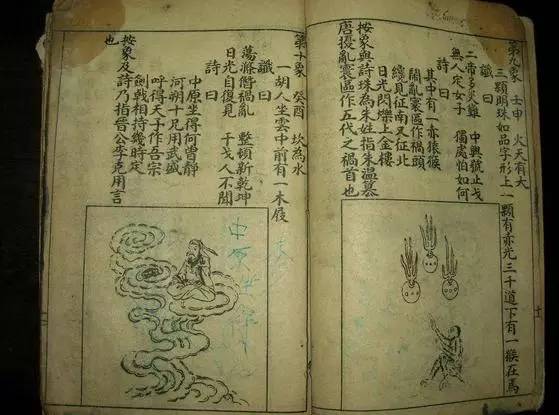 第九象 壬申 火天有大
三顆明珠如品字形上一顆有赤光三千道下有一猴在馬
讖曰
二帝多災難 中興號止戈
無人定女子 獨處怕如何
詩曰
其中有一赤猿猴
鬧亂寰區作禍頭
纔見征南又征北
日光閃爍上金樓
按象與詩珠為朱姓指朱溫篡
唐擾亂寰區作五代之禍首也
第十象 癸酉 坎為水
一胡人坐雲中前有一木屐
讖曰
蕩滌僭禍亂 整頓新乾坤
日光自復見 干戈人不聞
詩曰
中原坐得何曾靜
河朔十兄用武盛
呼得天子作吾宗
劍戟相持幾時定
按象及詩乃指晉公李克用言
也
中原坐